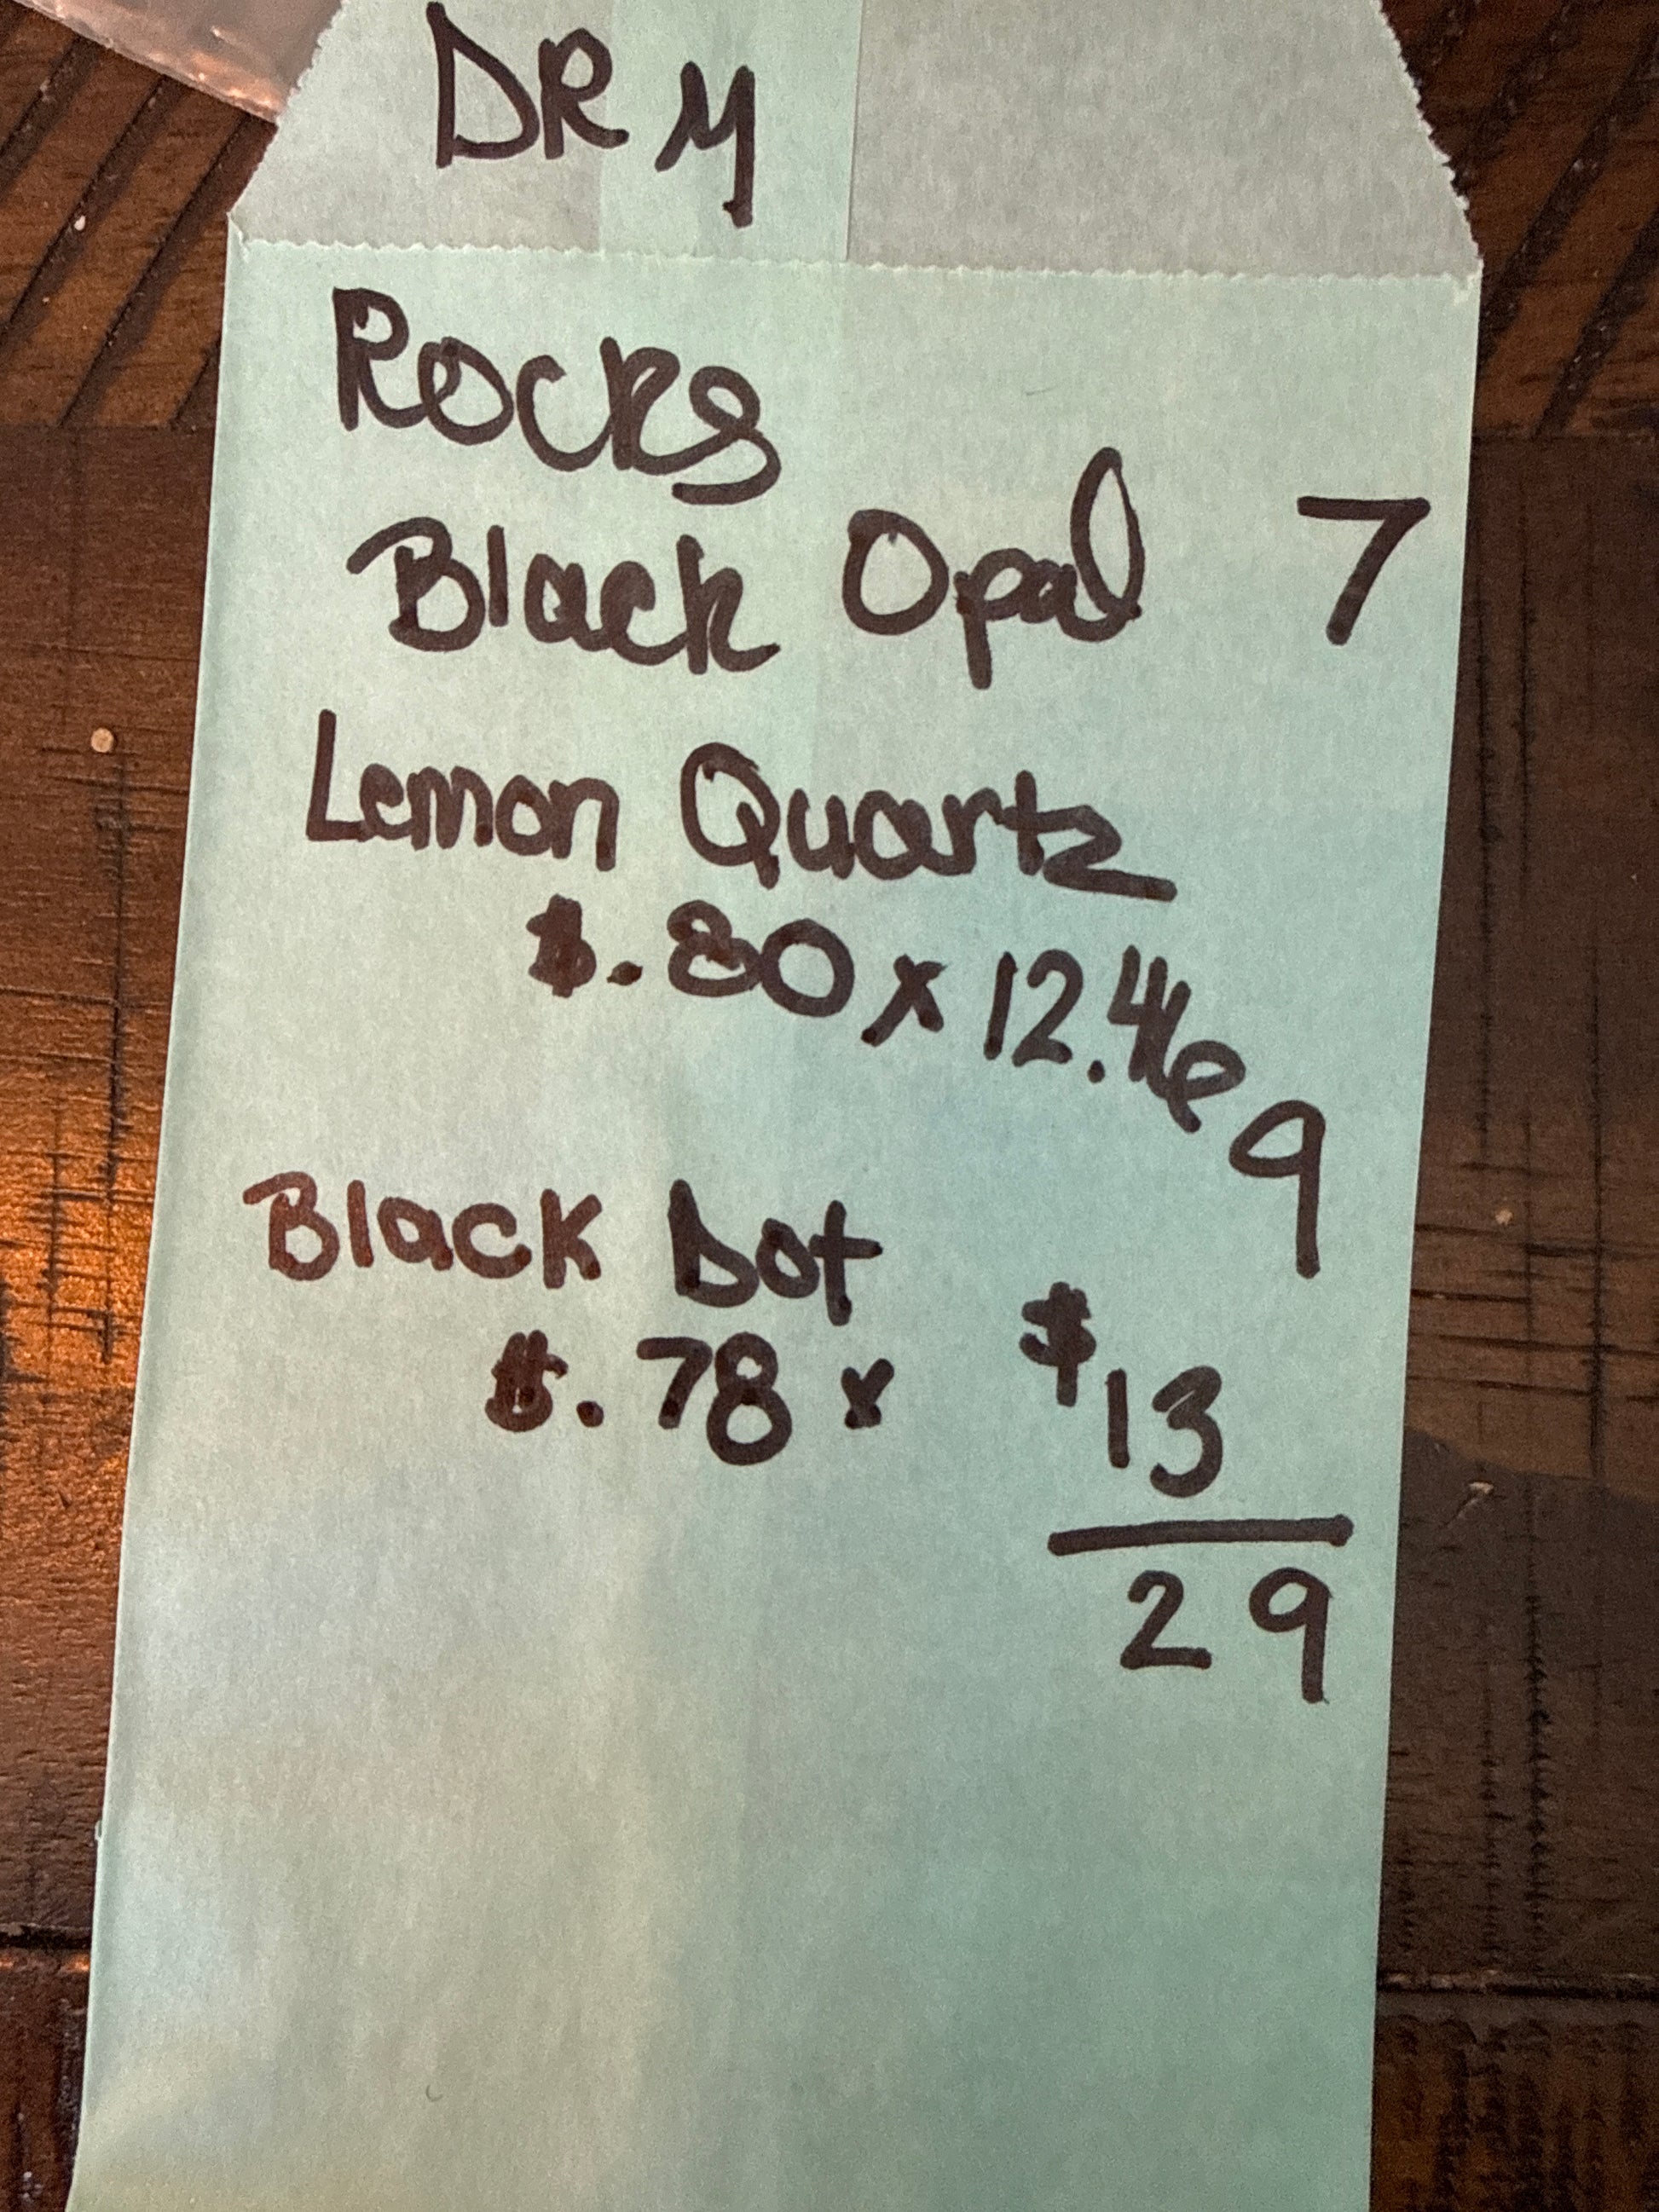 DRM
Rocks
Black Opal 7
Lemon Quartz
$.80 x 12.46
9
Black Dot
$.78 x $13
29